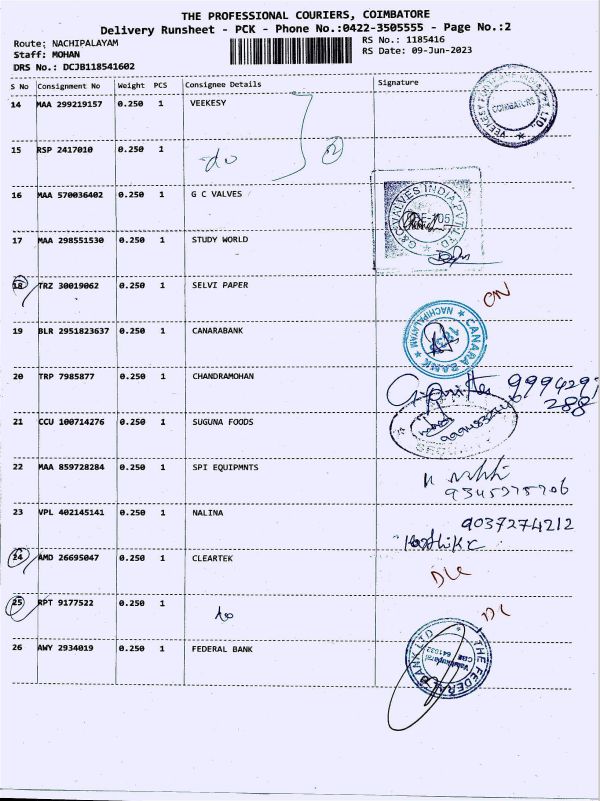 THE PROFESSIONAL COURIERS, COIMBATORE
Delivery Runsheet - PCK - Phone No.:0422-3505555 - Page No.:2
Route: NACHIPALAYAM RS No.: 1185416
Staff: MOHAN RS Date: 09-Jun-2023
DRS No.: DCJB118541602
S No Consignment No Weight PCS Consignee Details Signature
14 MAA 299219157 0.250 1 VEEKESY
COIMBATORE
15 RSP 2417010 0.250 1 do 2
16 MAA 570036402 0.250 1 G C VALVES
G&C VALVES INDIA PVT LTD
17 MAA 298551530 0.250 1 STUDY WORLD
18 TRZ 30019062 0.250 1 SELVI PAPER ON
19 BLR 2951823637 0.250 1 CANARABANK
CANARA BANK NACHIPALAYAM
20 TRP 7985877 0.250 1 CHANDRAMOHAN
288
21 CCU 100714276 0.250 1 SUGUNA FOODS
22 MAA 859728284 0.250 1 SPI EQUIPMNTS
23 VPL 402145141 0.250 1 NALINA 9037274212
24 AMD 26695047 0.250 1 CLEARTEK DLC
25 RPT 9177522 0.250 1 do DL
26 AWY 2934019 0.250 1 FEDERAL BANK
THE FEDERAL BANK LTD